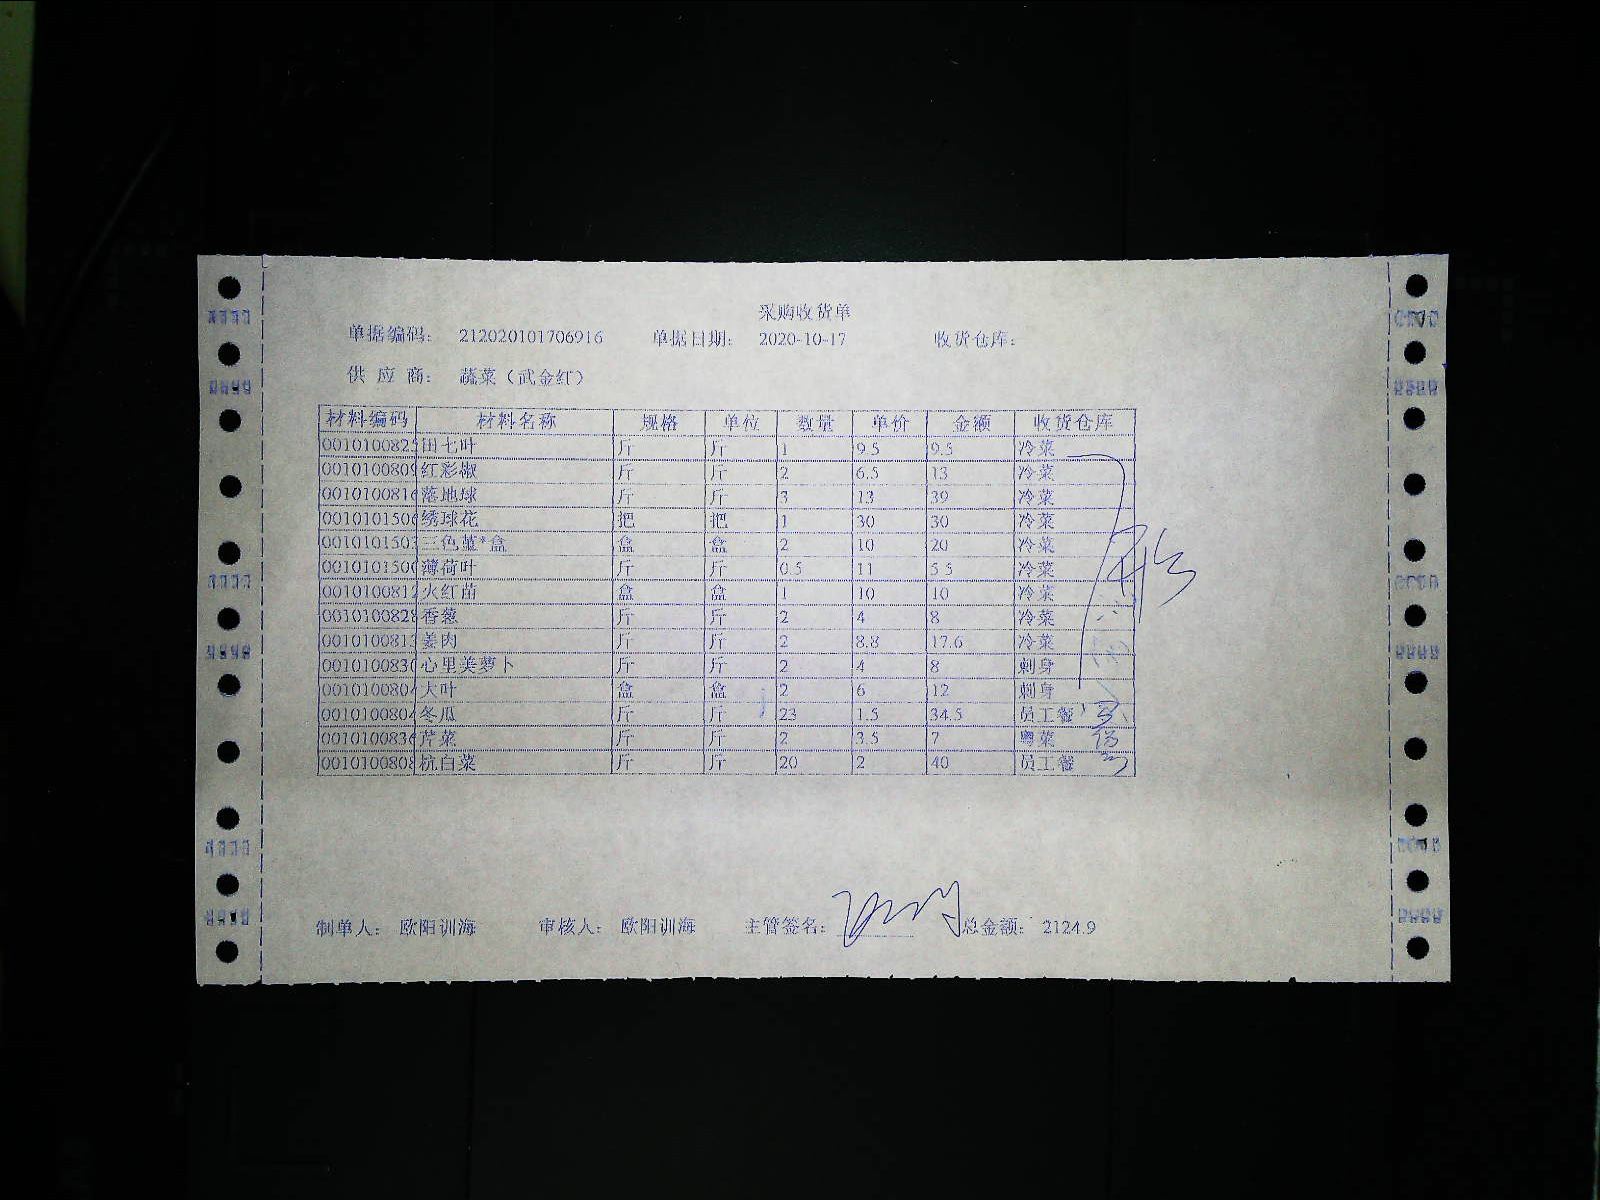 采购收货单
单据编码: 212020101706916 单据日期: 2020-10-17 收货仓库:
供应商: 蔬菜(武金红)
材料编码 材料名称 规格 单位 数量 单价 金额 收货仓库
001010082 田七叶 斤 斤 1 9.5 9.5 冷菜
001010080 红彩椒 斤 斤 2 6.5 13 冷菜
001010081 落地球 斤 斤 3 13 39 冷菜
001010150 绣球花 把 把 1 30 30 冷菜
001010150 三色堇*盒 盒 盒 2 10 20 冷菜
001010150 薄荷叶 斤 斤 0.5 11 5.5 冷菜
001010081 火红苗 盒 盒 1 10 10 冷菜
001010082 香葱 斤 斤 2 4 8 冷菜
001010081 姜肉 斤 斤 2 8.8 17.6 冷菜
001010083 心里美萝卜 斤 斤 2 4 8 刺身
001010080 大叶 盒 盒 2 6 12 刺身
001010080 冬瓜 斤 斤 23 1.5 34.5 员工餐
001010083 芹菜 斤 斤 2 3.5 7 粤菜
001010080 杭白菜 斤 斤 20 2 40 员工餐
制单人: 欧阳训海 审核人: 欧阳训海 主管签名: 总金额: 2124.9